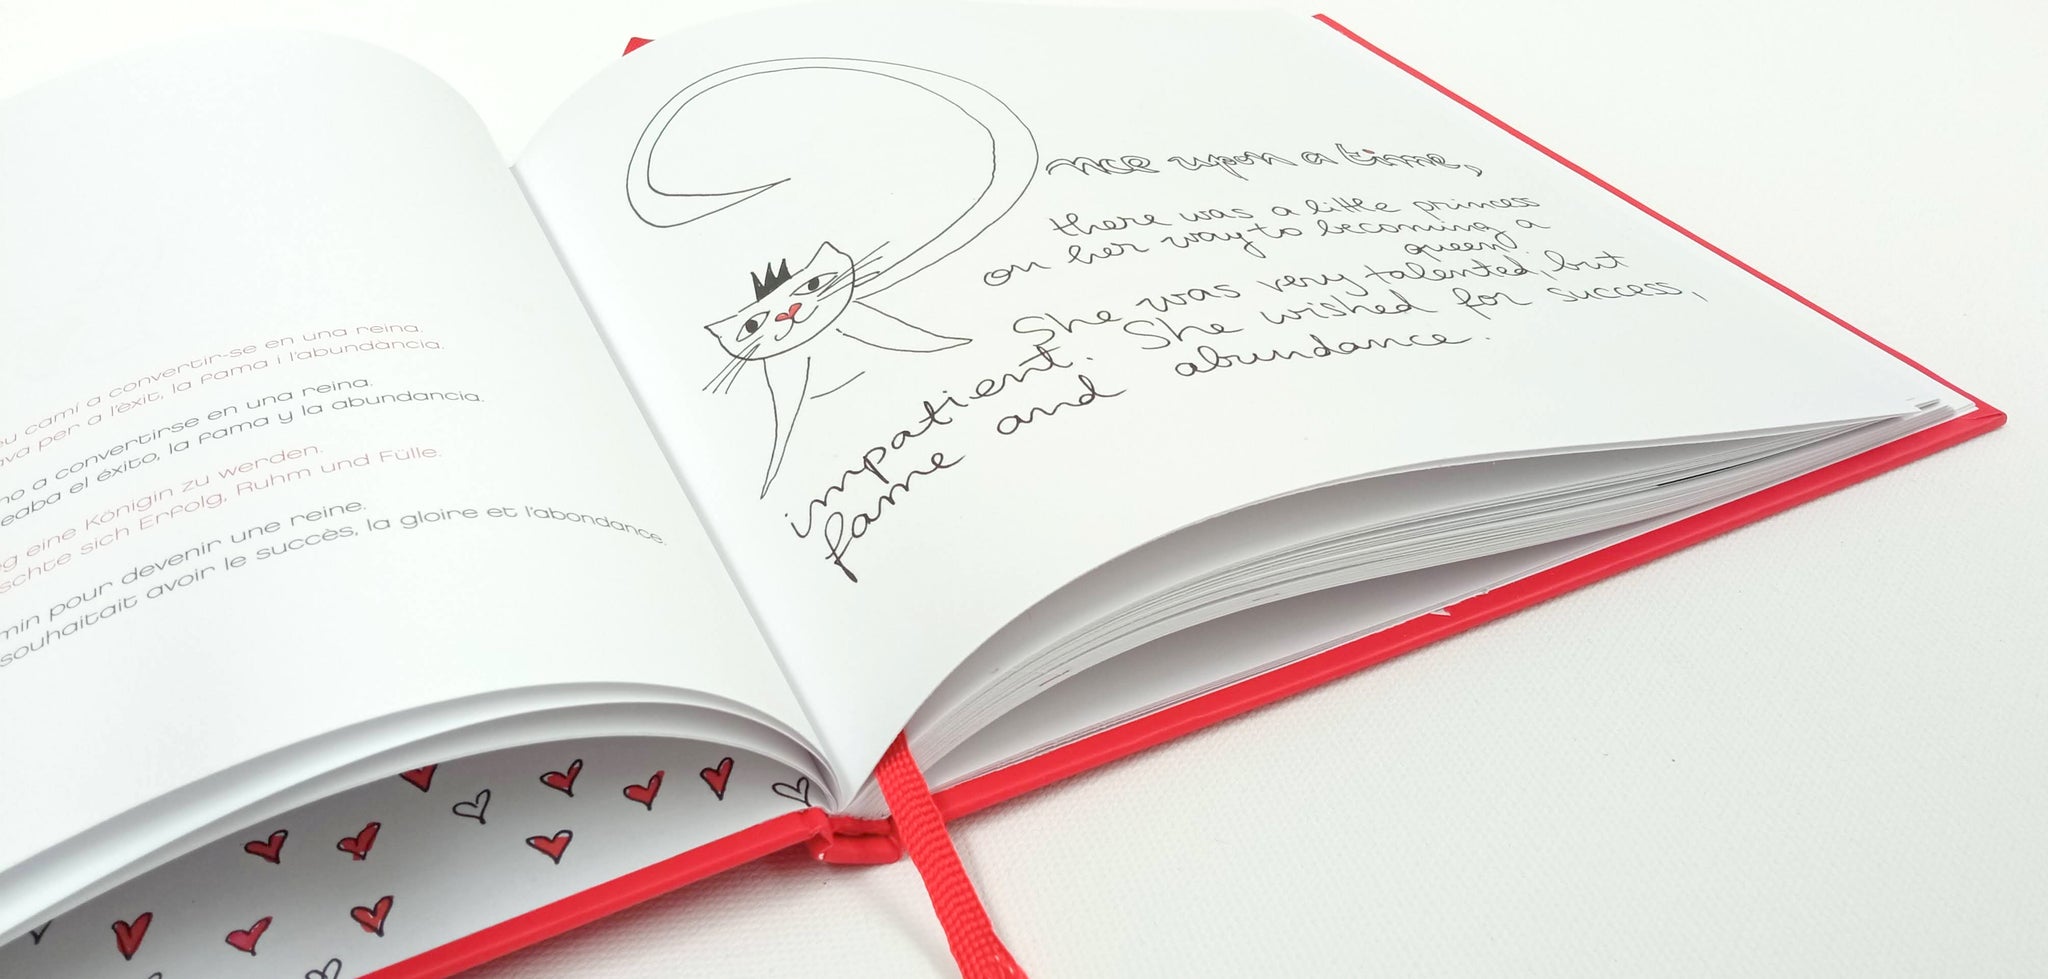 eu camí a convertir-se en una reina.
ava per a l'èxit, la fama i l'abundància.
no a convertirse en una reina.
eaba el éxito, la fama y la abundancia.
g eine Königin zu werden.
schte sich Erfolg, Ruhm und Fülle.
min pour devenir une reine.
souhaitait avoir le succès, la gloire et l'abondance.
Once upon a time,
there was a little princess
on her way to becoming a
queen.
She was very talented, but
impatient. She wished for success,
fame and abundance.